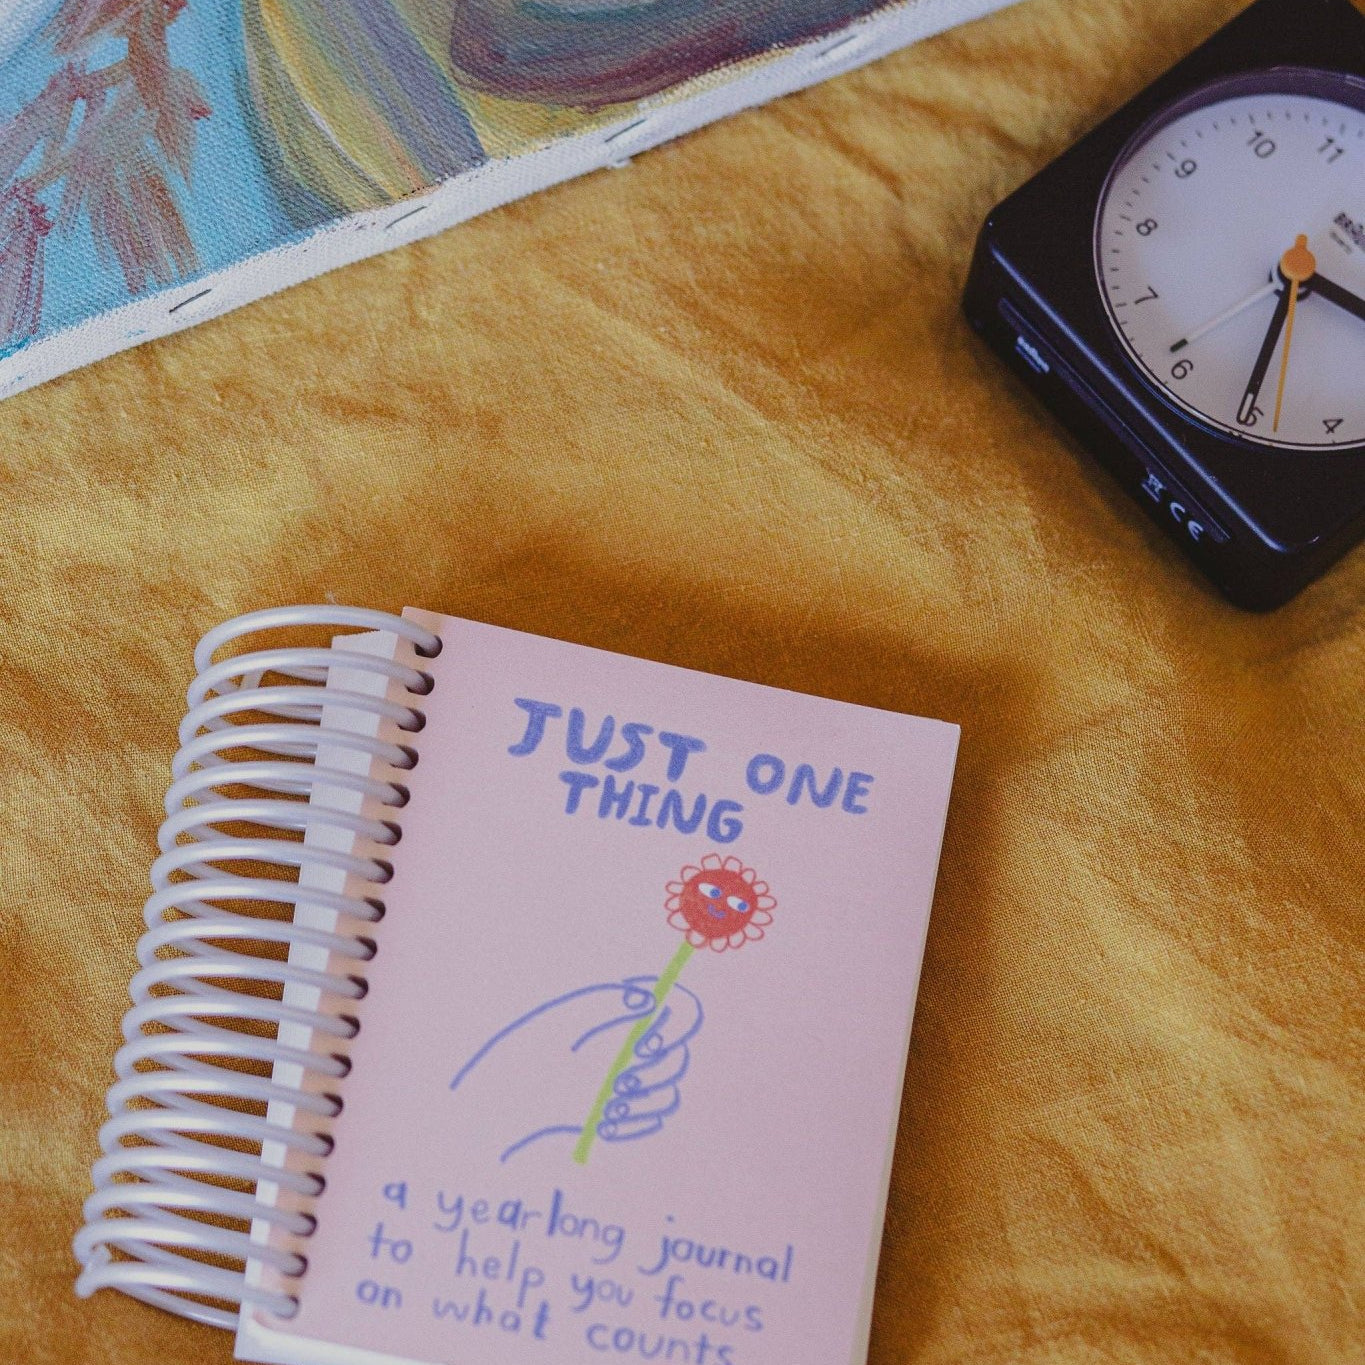 10
11
9
8
BRAUN
7
6
5
4
CE
JUST ONE
THING
a yearlong journal
to help you focus
on what counts